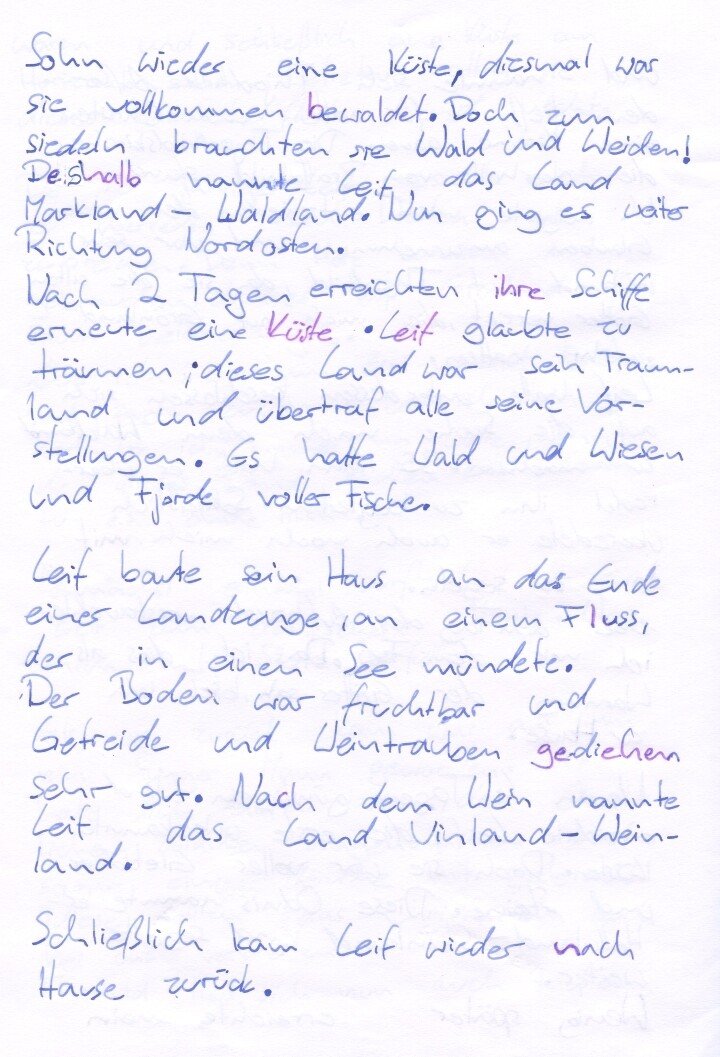 Sohn wieder eine Küste, diesmal war
sie vollkommen bewaldet. Doch zum
siedeln brauchten sie Wald und Weiden!
Deshalb nannte Leif das Land
Markland – Waldland. Nun ging es weiter
Richtung Nordosten.
Nach 2 Tagen erreichten ihre Schiffe
erneute eine Küste. Leif glaubte zu
träumen; dieses Land war sein Traum-
land und übertraf alle seine Vor-
stellungen. Es hatte Wald und Wiesen
und Fjorde voller Fische.
Leif baute sein Haus an das Ende
einer Landzunge, an einem Fluss,
der in einen See mündete.
Der Boden war fruchtbar und
Getreide und Weintrauben gediehen
sehr gut. Nach dem Wein nannte
Leif das Land Vinland – Wein-
land.
Schließlich kam Leif wieder nach
Hause zurück.